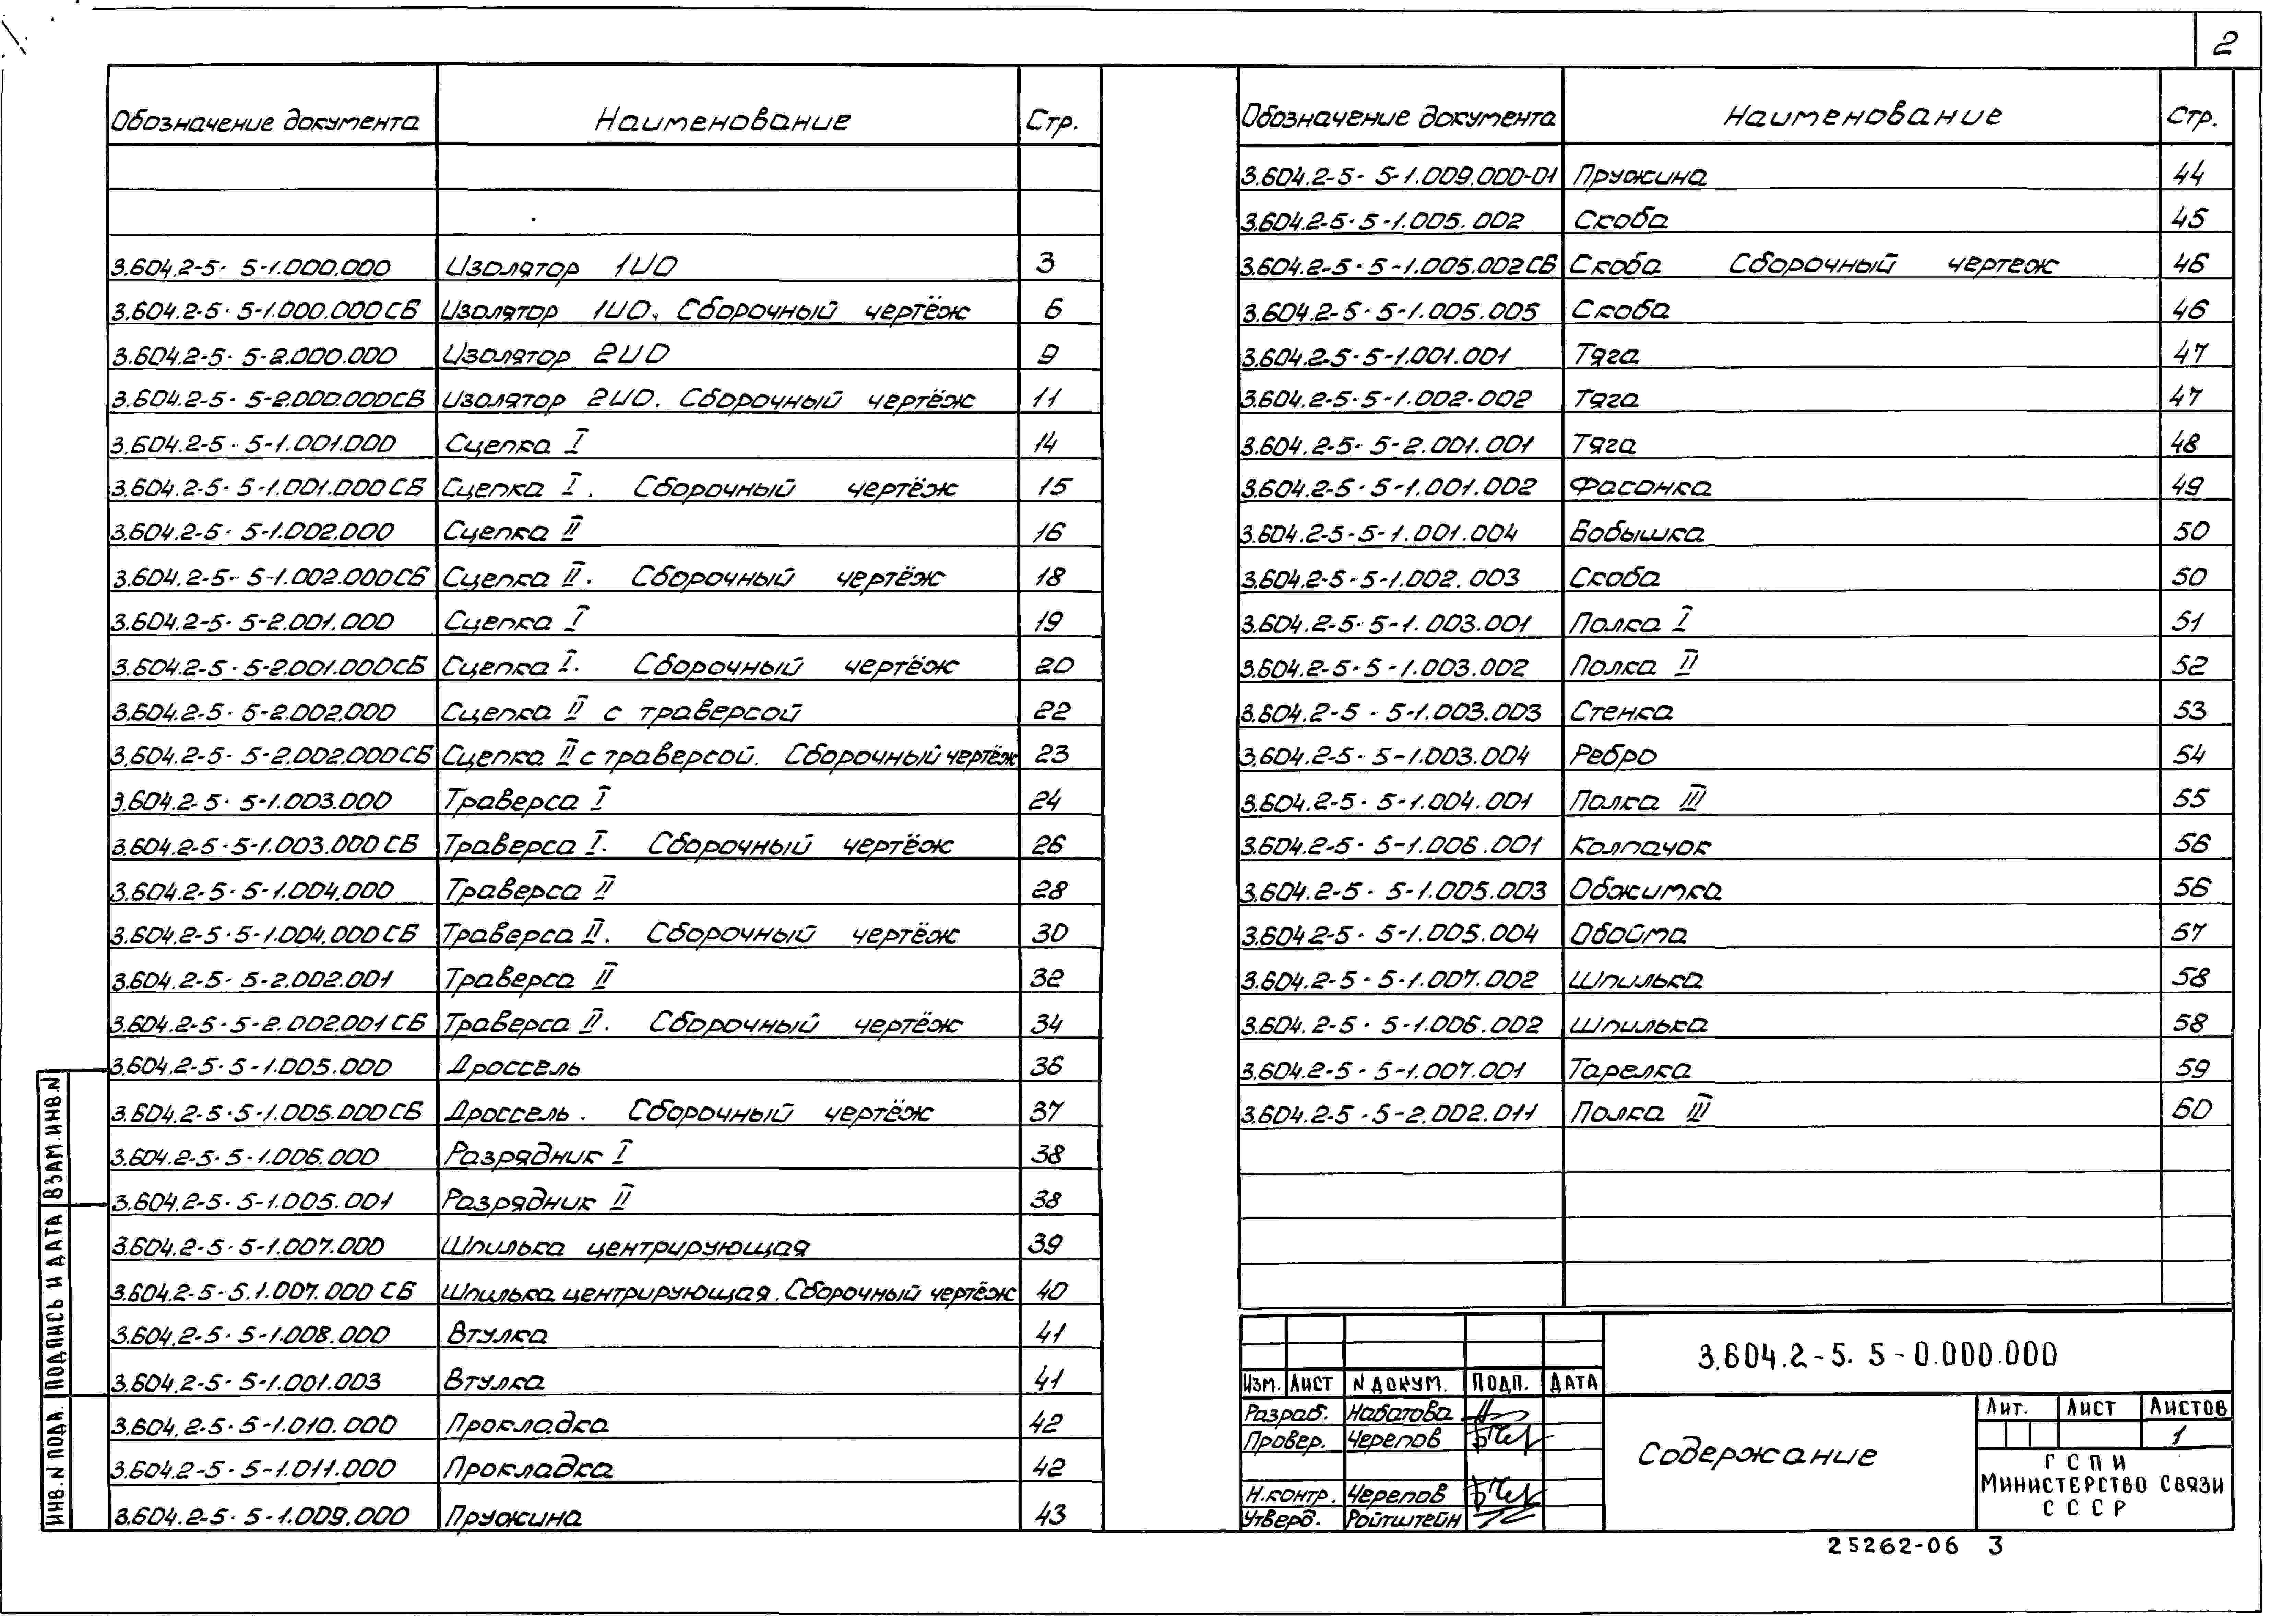 2
Обозначение документа Наименование Стр.
3.604.2-5.5-1.000.000 Изолятор 1ИО 3
3.604.2-5.5-1.000.000СБ Изолятор 1ИО. Сборочный чертёж 6
3.604.2-5.5-2.000.000 Изолятор 2ИО 9
3.604.2-5.5-2.000.000СБ Изолятор 2ИО. Сборочный чертёж 11
3.604.2-5.5-1.001.000 Сцепка I 14
3.604.2-5.5-1.001.000СБ Сцепка I. Сборочный чертёж 15
3.604.2-5.5-1.002.000 Сцепка II 16
3.604.2-5.5-1.002.000СБ Сцепка II. Сборочный чертёж 18
3.604.2-5.5-2.001.000 Сцепка I 19
3.604.2-5.5-2.001.000СБ Сцепка I. Сборочный чертёж 20
3.604.2-5.5-2.002.000 Сцепка II с траверсой 22
3.604.2-5.5-2.002.000СБ Сцепка II с траверсой. Сборочный чертёж 23
3.604.2-5.5-1.003.000 Траверса I 24
3.604.2-5.5-1.003.000СБ Траверса I. Сборочный чертёж 26
3.604.2-5.5-1.004.000 Траверса II 28
3.604.2-5.5-1.004.000СБ Траверса II. Сборочный чертёж 30
3.604.2-5.5-2.002.001 Траверса II 32
3.604.2-5.5-2.002.001СБ Траверса II. Сборочный чертёж 34
3.604.2-5.5-1.005.000 Дроссель 36
3.604.2-5.5-1.005.000СБ Дроссель. Сборочный чертёж 37
3.604.2-5.5-1.006.000 Разрядник I 38
3.604.2-5.5-1.005.001 Разрядник II 38
3.604.2-5.5-1.007.000 Шпилька центрирующая 39
3.604.2-5.5.1.007.000СБ Шпилька центрирующая. Сборочный чертёж 40
3.604.2-5.5-1.008.000 Втулка 41
3.604.2-5.5-1.001.003 Втулка 41
3.604.2-5.5-1.010.000 Прокладка 42
3.604.2-5.5-1.011.000 Прокладка 42
3.604.2-5.5-1.009.000 Пружина 43
Обозначение документа Наименование Стр.
3.604.2-5.5-1.009.000-01 Пружина 44
3.604.2-5.5-1.005.002 Скоба 45
3.604.2-5.5-1.005.002СБ Скоба Сборочный чертеж 46
3.604.2-5.5-1.005.005 Скоба 46
3.604.2-5.5-1.001.001 Тяга 47
3.604.2-5.5-1.002.002 Тяга 47
3.604.2-5.5-2.001.001 Тяга 48
3.604.2-5.5-1.001.002 Фасонка 49
3.604.2-5.5-1.001.004 Бобышка 50
3.604.2-5.5-1.002.003 Скоба 50
3.604.2-5.5-1.003.001 Полка I 51
3.604.2-5.5-1.003.002 Полка II 52
3.604.2-5.5-1.003.003 Стенка 53
3.604.2-5.5-1.003.004 Ребро 54
3.604.2-5.5-1.004.001 Полка III 55
3.604.2-5.5-1.006.001 Колпачок 56
3.604.2-5.5-1.005.003 Обжимка 56
3.604.2-5.5-1.005.004 Обойма 57
3.604.2-5.5-1.007.002 Шпилька 58
3.604.2-5.5-1.006.002 Шпилька 58
3.604.2-5.5-1.007.001 Тарелка 59
3.604.2-5.5-2.002.011 Полка III 60
3.604.2-5.5-0.000.000
Изм. Лист N докум. Подп. Дата
Разраб. Набатова
Провер. Черепов
Н.контр. Черепов
Утверд. Ройтштейн
Содержание
Лит. Лист Листов
1
ГСПИ
Министерство связи
СССР
25262-06 3
ИНВ.N ПОДЛ. ПОДПИСЬ И ДАТА ВЗАМ.ИНВ.N